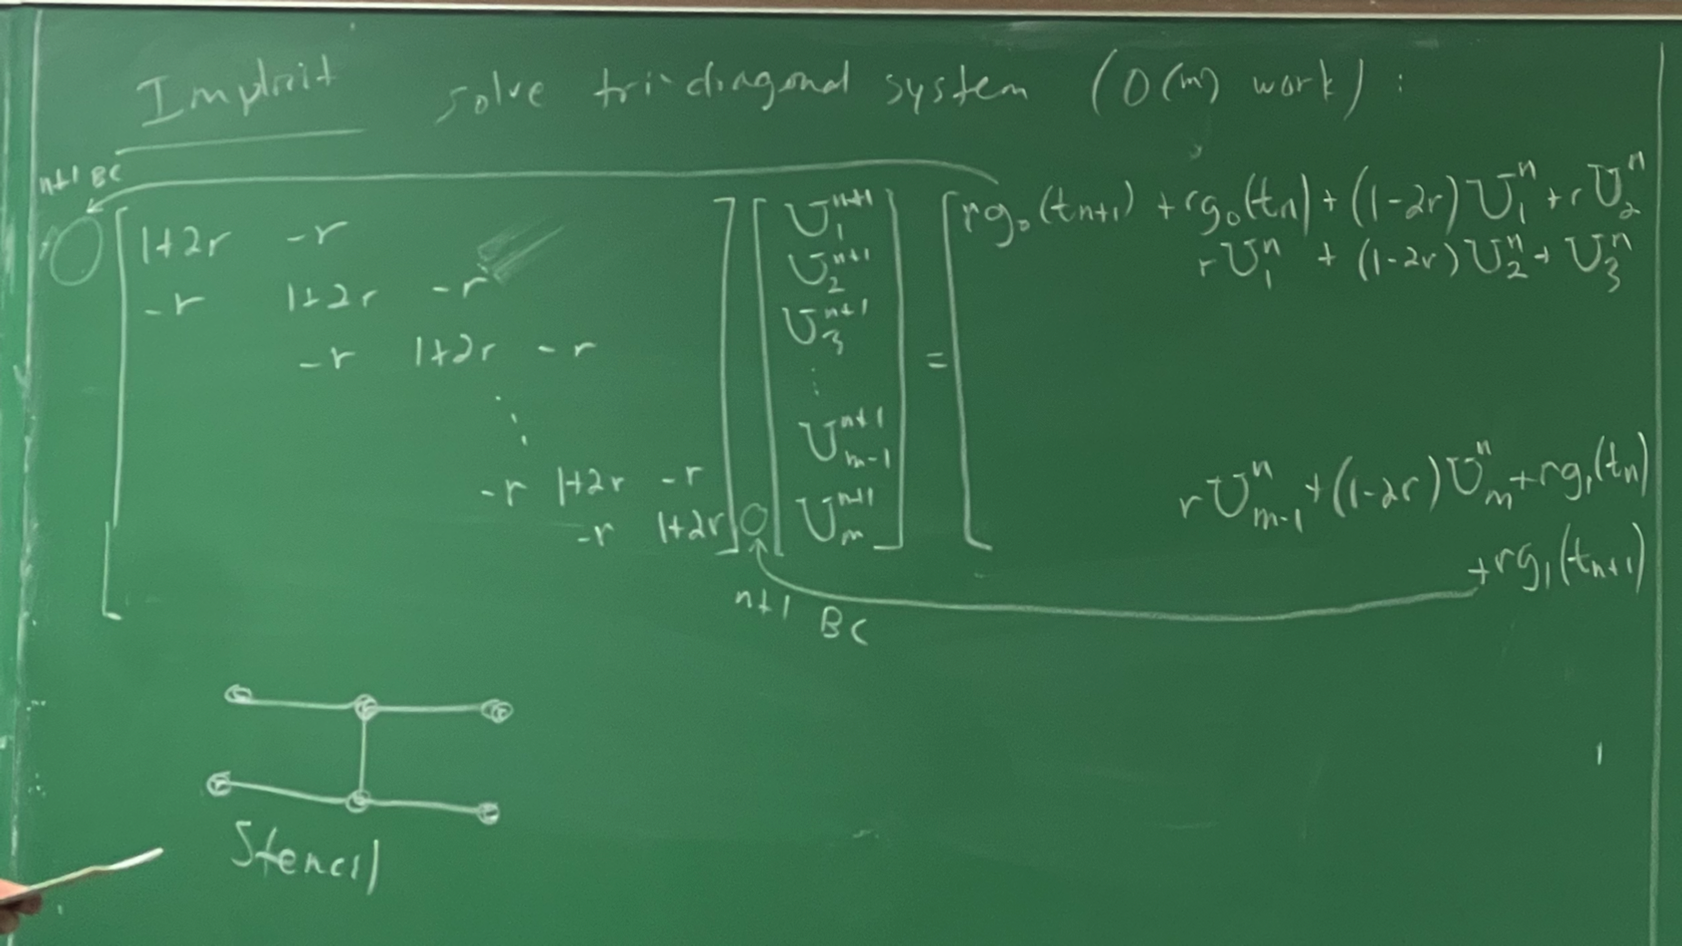 Implicit solve tri-diagonal system (O(m) work) :
n+1 BC
1+2r -r
-r 1+2r -r
-r 1+2r -r
⋱
-r 1+2r -r
-r 1+2r
U_1^{n+1}
U_2^{n+1}
U_3^{n+1}
⋮
U_{m-1}^{n+1}
U_m^{n+1}
=
rg_0(t_{n+1}) + rg_0(t_n) + (1-2r)U_1^n + rU_2^n
rU_1^n + (1-2r)U_2^n + U_3^n
rU_{m-1}^n + (1-2r)U_m^n + rg_1(t_n)
+rg_1(t_{n+1})
n+1 BC
Stencil